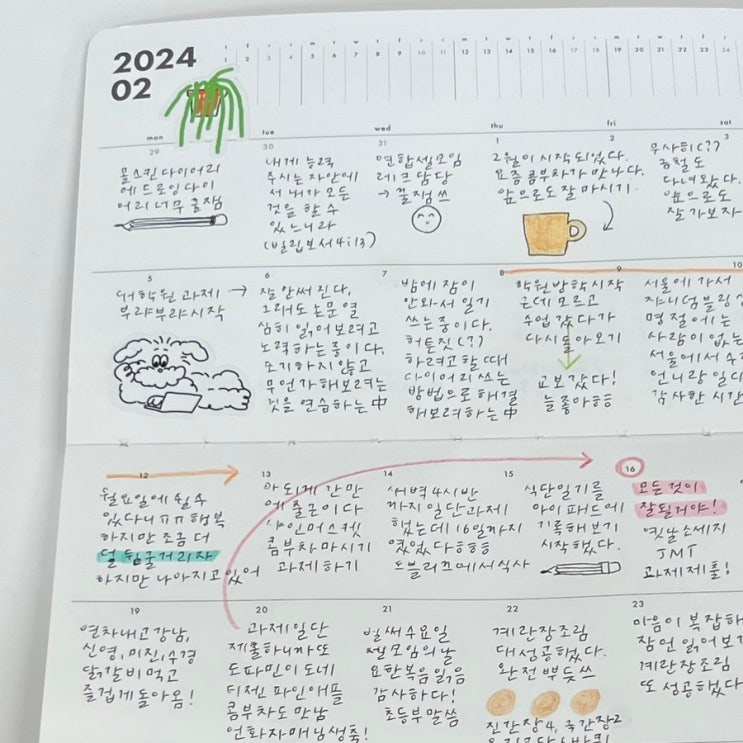 2024
02
mon
tue
wed
thu
fri
sat
29
몰스킨 다이어리
에 드로잉 다이
어리 너무 꿀잼
30
내게 능력
주시는 자 안에
서 내가 모든
것을 할 수
있느니라
(빌립보서 4:13)
31
연합셀모임
레크 담당
→ 꿀잼쓰
1
2월이 시작되었다.
요즘 콤부차가 맛나다.
앞으로도 잘 마시기.
2
3
무사히(?)
다녀왔다.
앞으로도
잘 가보자
5
대학원 과제 →
부랴부랴 시작
6
잘 안써진다.
그래도 논문 열
심히 읽어보려고
노력하는 중이다.
포기하지 않고
무언가 해보려는
것을 연습하는 中
7
밤에 잠이
안와서 일기
쓰는 중이다.
허튼짓(?)
하려고 할 때
다이어리 쓰는
방법으로 해결
해보려하는 中
8
학원 방학 시작
근데 모르고
수업 갔다가
다시 돌아오기
교보 갔다!
늘 좋아ㅎㅎ
9
10
서울에 가서
명절에는
사람이 없는
서울에서
언니랑
감사한 시간
12
월요일에 쉴 수
있다니 ㅠㅠ 행복
하지만 조금 더
덜 뒹굴거리자
하지만 나아지고 있어
13
아 되게 간만
에 출근이다
샤인머스켓
콤부차 마시기
과제하기
14
새벽 4시반
까지 일단 과제
했는데 16일까지
였었다 ㅎㅎㅎ
오블리크에서 식사
15
식단일기를
아이패드에
기록해보기
시작했다.
16
모든 것이
잘될거야!
옛날소세지
JMT
과제제출!
19
연차내고 강남,
신영, 미진, 수경
닭갈비 먹고
즐겁게 돌아옴!
20
과제 일단
제출하니까 또
도파민이 도네
티젠 파인애플
콤부차도 만남
언화자매님생축!
21
벌써 수요일
셀모임의 날
요한복음 읽음
감사하다!
초등부 말씀
22
계란장조림
대성공했다.
완전 뿌듯쓰
진간장4, 국간장2
23
마음이 복잡해
잠언 읽어보기
계란장조림
또 성공했다